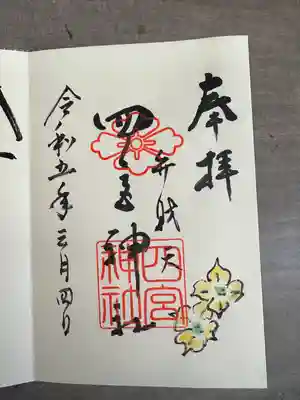 奉拝
弁財天
四宮神社
四宮
神社
令和五年三月四日